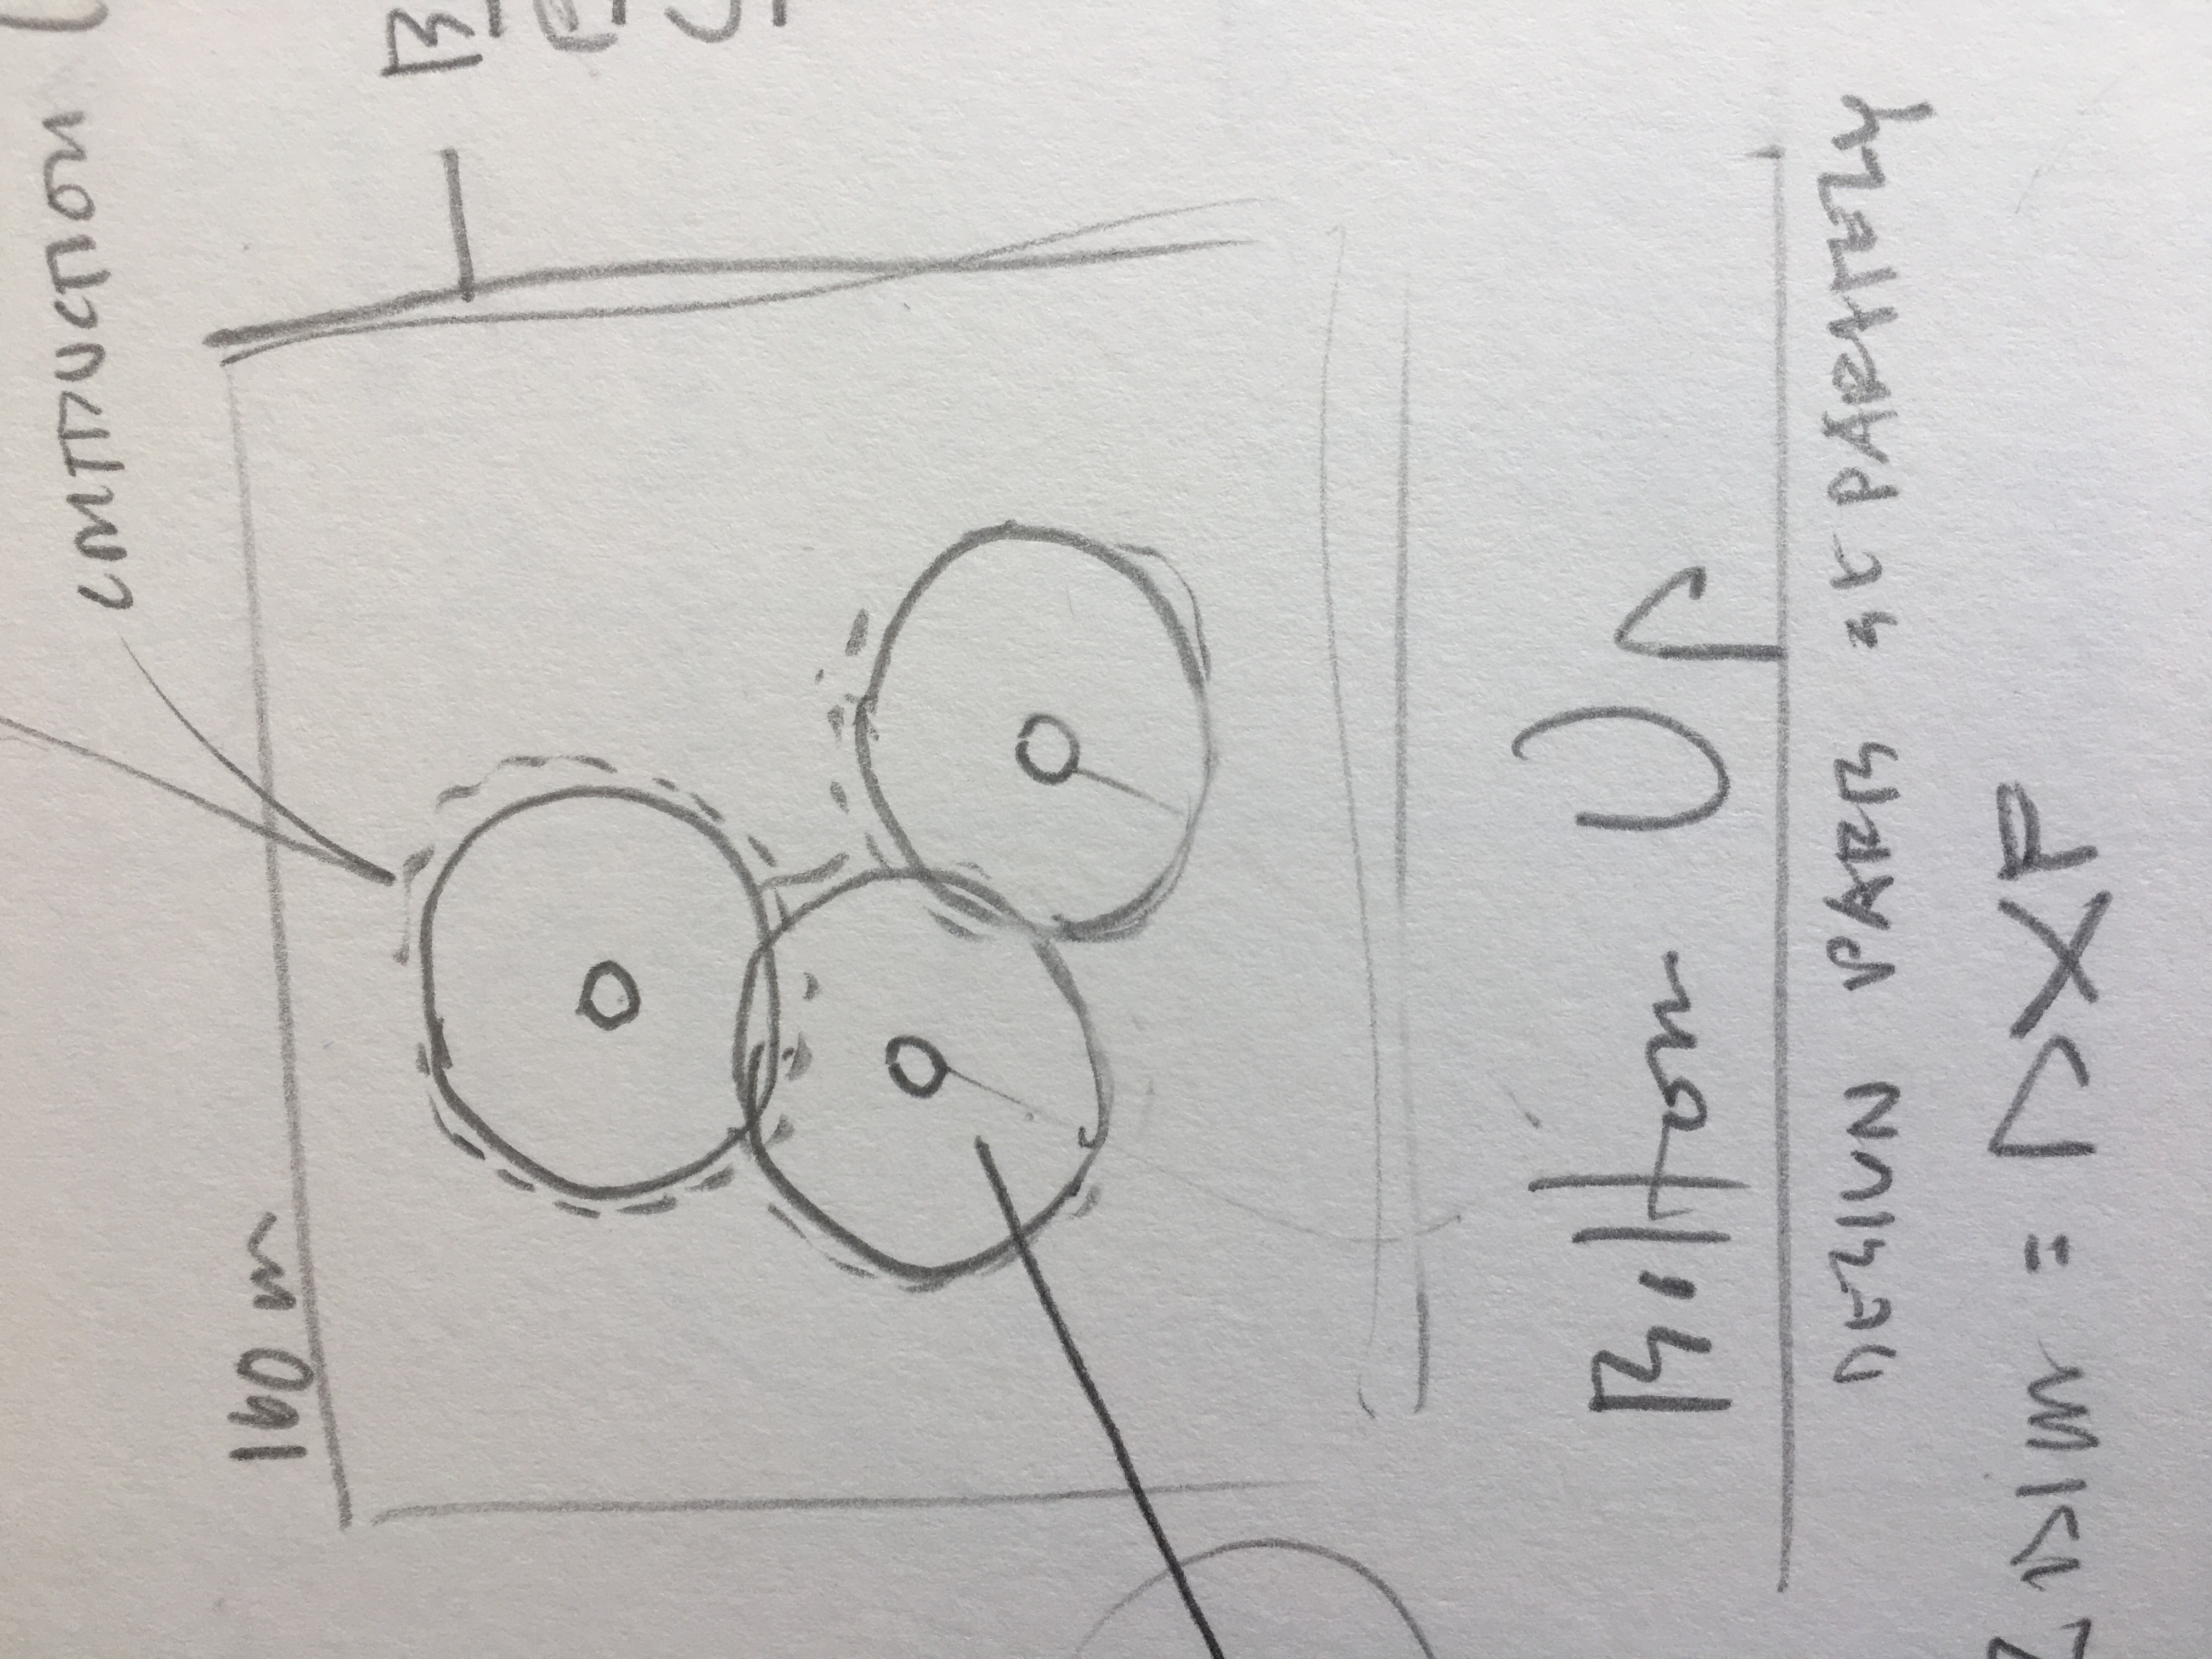 CONTRUCTION
160 m
B
P
C
Bottom Up
DESIGN PARTS SEPARATELY
2 DIM = DXF